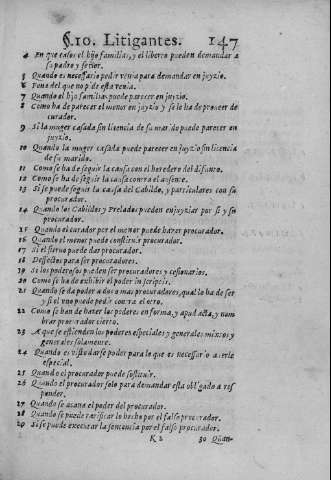 §.10. Litigantes. 147
4 En que casos el hijo familias, y el liberto pueden demandar a
su padro y señor.
5 Quando es necessario pedir venia para demandar en juyzio.
6 Pena del que no pide esta venia.
7 Quando el hijo familias puede parecer en juyzio.
8 Como ha de parecer el menor en juyzio y se le ha de proueer de
curador.
9 Si la muger casada sin licencia de su marido puede parecer en
juyzio.
10 Quando la muger casada puede parecer en juyzio sin licencia
de su marido.
11 Como se ha de seguir la causa con el heredero del difunto.
12 Como se ha de seguir la causa contra el ausente.
13 Si se puede seguir la causa del Cabildo, y particulares con su
procurador.
14 Quando los Cabildos y Prelados pueden enjuyziar por si y su
procurador.
15 Quando el curador por el menor puede hazer procurador.
16 Quando el menor puede constituir procurador.
17 Si el sieruo puede dar procurador.
18 Deffectos para ser procuradores.
19 Si los poderosos pueden ser procuradores y cessionarios.
20 Como se ha de exhibir el poder in scriptis.
21 Quando se da poder a dos o mas procuradores, qual lo ha de ser
y si el vno puede dar contra el otro.
22 Como se han de hazer los poderes en forma, y apud acta, y nom
brar procurador cierto.
23 A que se estienden los poderes especiales y generales mixtos y
generales solamente.
24 Quando es visto darse poder para lo que es necessario auerle
especial.
25 Quando el procurador puede sostituir.
26 Quando el procurador solo para demandar esta obligado a res
ponder.
27 Quando se acaua el poder del procurador.
28 Quando se puede ratificar lo hecho por el falso procurador.
29 Si se puede executar la sentencia por el falso procurador.
K 2 30 Quan-